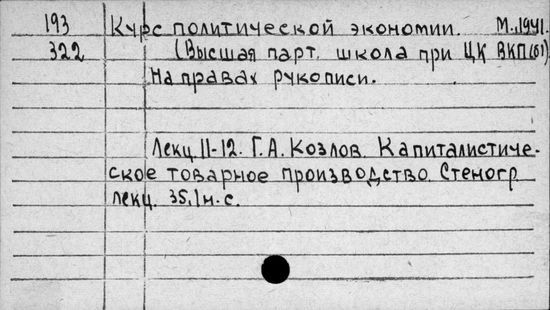 193 Курс политической экономии. М., 1941.
322 (Высшая парт. школа при ЦК ВКП(б)).
На правах рукописи.
Лекц. 11-12. Г.А. Козлов. Капиталистиче-
ское товарное производство. Стеногр.
лекц. 35, 1 н. с.